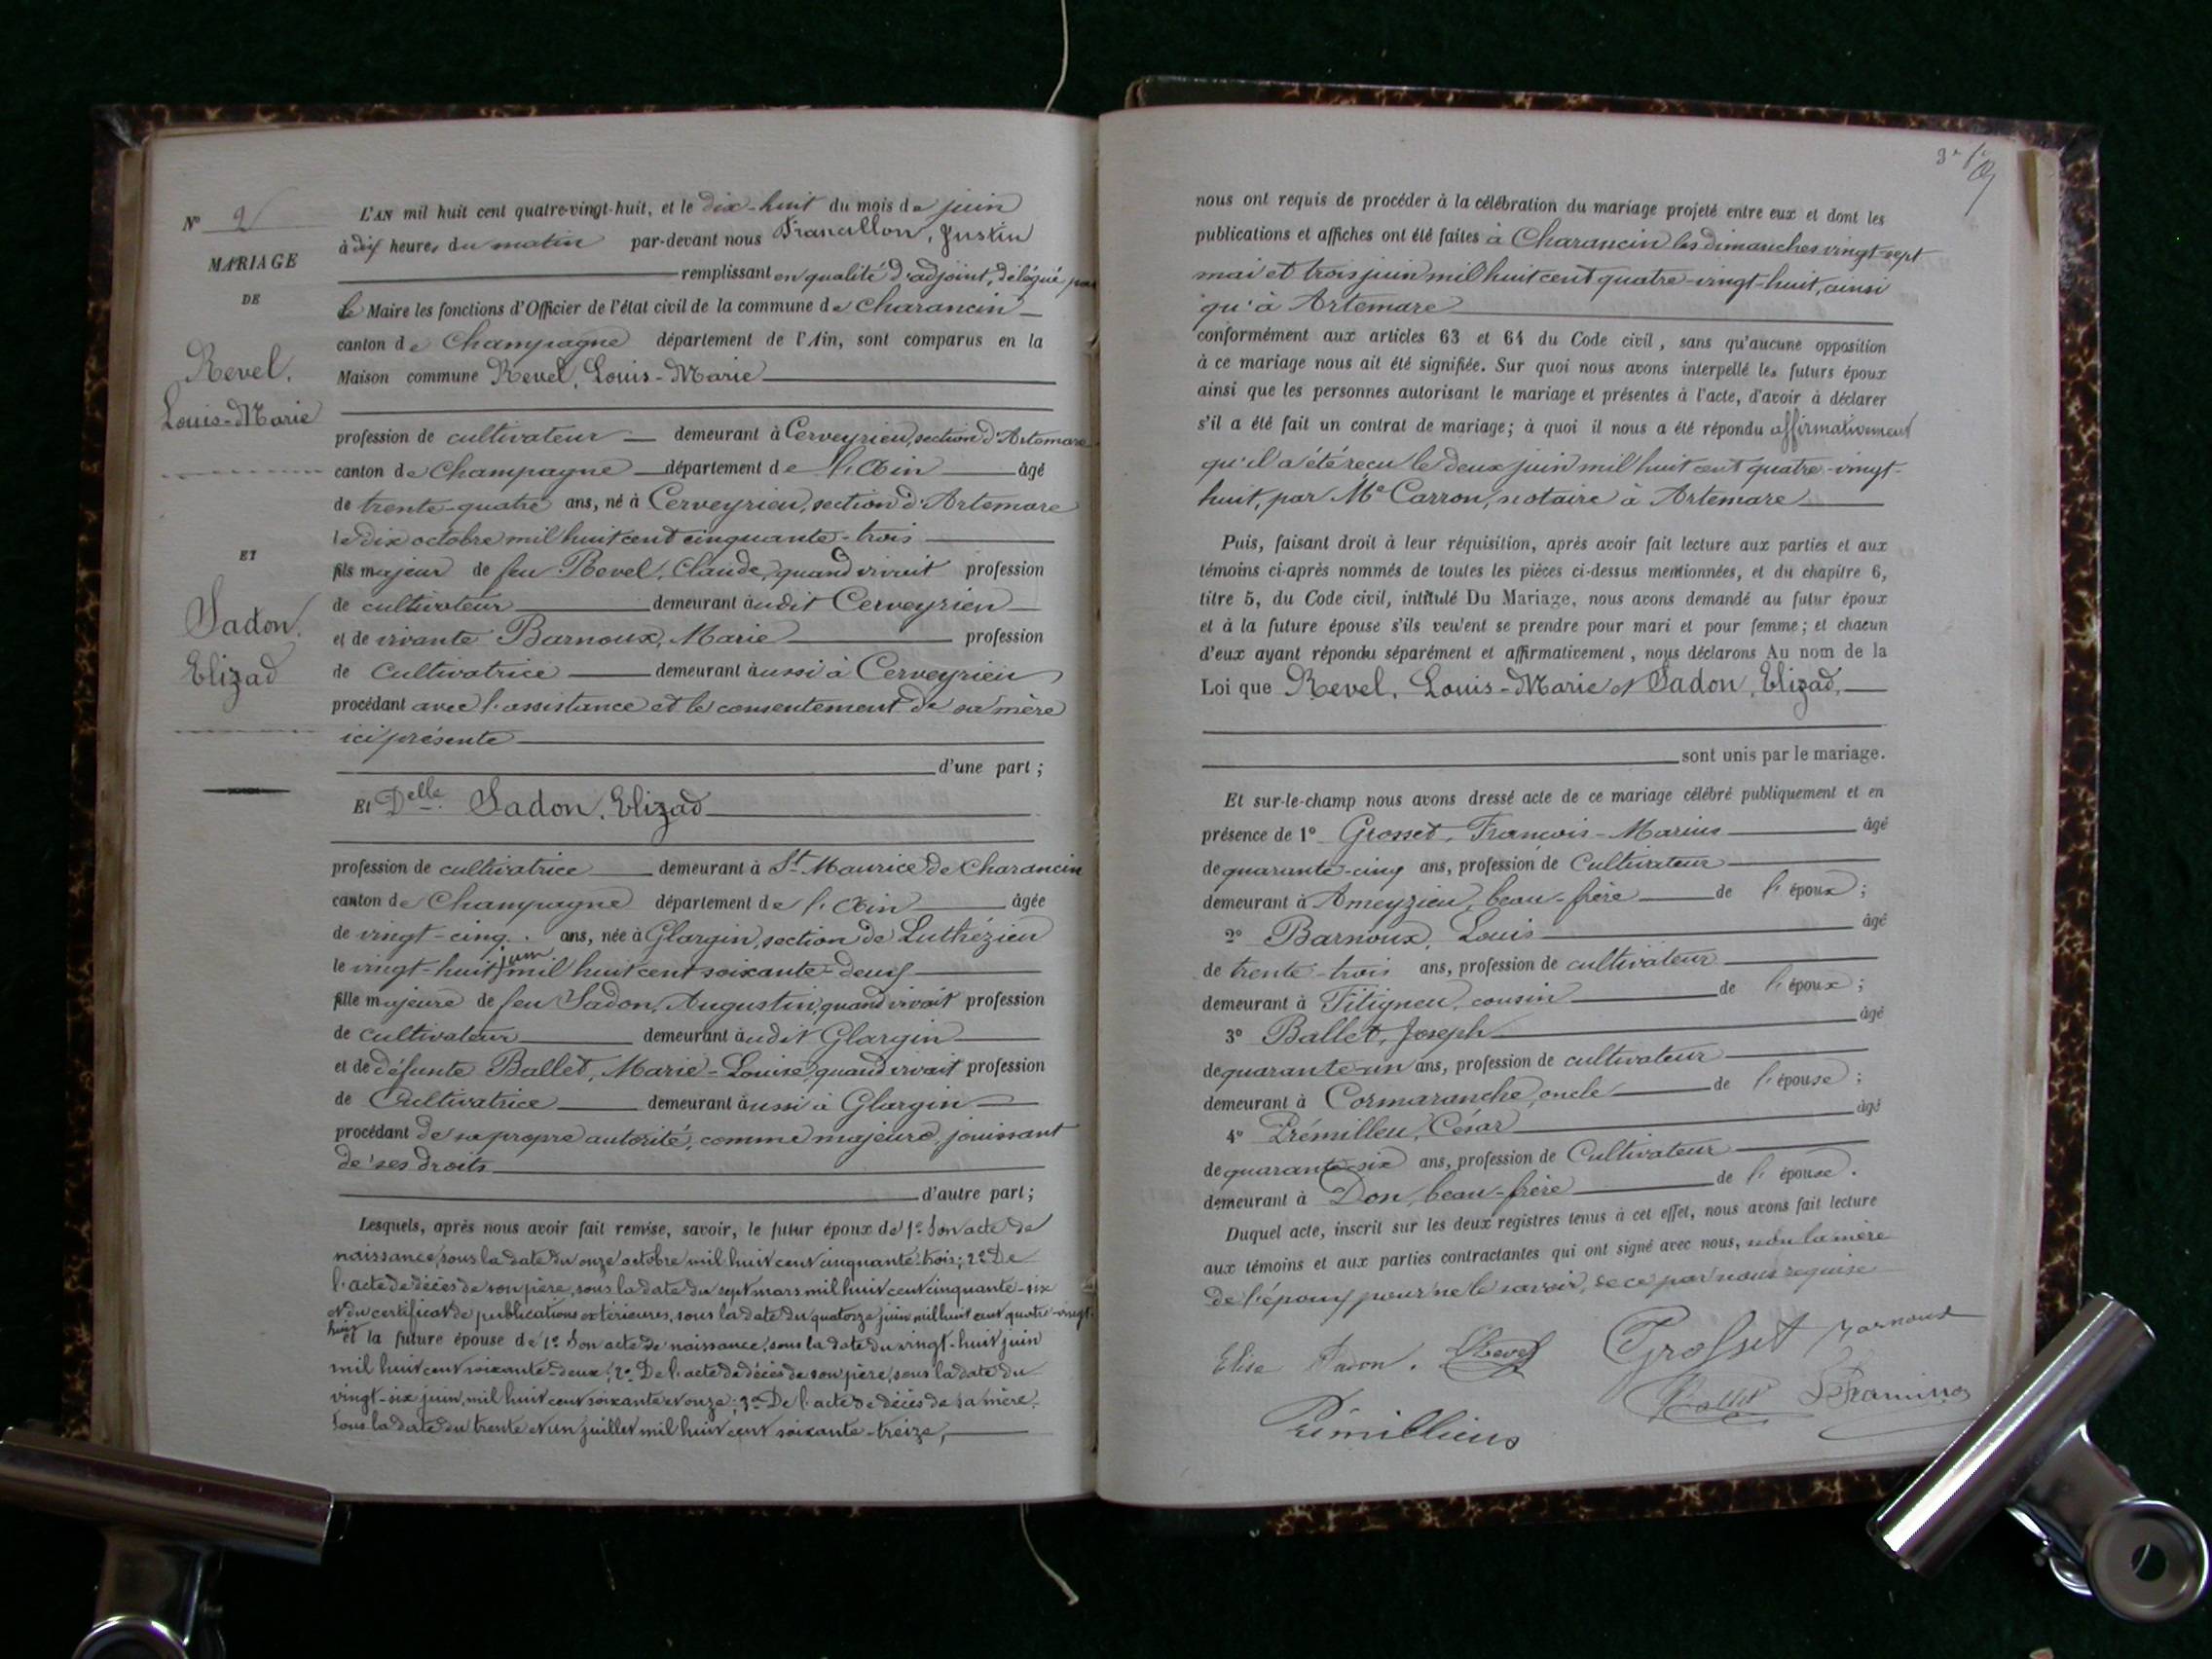 N° 2
MARIAGE
DE
Revel,
Louis-Marie
ET
Sadon,
Elizad
L'AN mil huit cent quatre-vingt-huit, et le dix-huit du mois de juin
à dix heures du matin par-devant nous Francillon, Justin
remplissant en qualité d'adjoint, délégué par
le Maire les fonctions d'Officier de l'état civil de la commune de Charancin
canton de Champagne département de l'Ain, sont comparus en la
Maison commune Revel, Louis-Marie
profession de cultivateur demeurant à Cerveyrieu, section d'Artemare
canton de Champagne département de l'Ain âgé
de trente-quatre ans, né à Cerveyrieu, section d'Artemare
le dix octobre mil huit cent cinquante-trois
fils majeur de feu Revel, Claude, quand vivait profession
de cultivateur demeurant audit Cerveyrieu
et de vivante Barnoux, Marie profession
de Cultivatrice demeurant aussi à Cerveyrieu
procédant avec l'assistance et le consentement de sa mère
ici présente
d'une part ;
Et Delle Sadon, Elizad
profession de cultivatrice demeurant à St Maurice de Charancin
canton de Champagne département de l'Ain âgée
de vingt-cinq ans, née à Glargin, section de Luthézieu
le vingt-huit juin mil huit cent soixante-deux
fille majeure de feu Sadon, Augustin, quand vivait profession
de cultivateur demeurant audit Glargin
et de défunte Ballet, Marie-Louise, quand vivait profession
de Cultivatrice demeurant aussi à Glargin
procédant de sa propre autorité, comme majeure, jouissant
de ses droits
d'autre part ;
Lesquels, après nous avoir fait remise, savoir, le futur époux de 1° Son acte de
naissance, sous la date du onze octobre mil huit cent cinquante-trois; 2° De
l'acte de décès de son père, sous la date du sept mars mil huit cent cinquante-six
et du certificat de publications extérieures, sous la date du quatorze juin mil huit cent quatre-vingt-
huit
et la future épouse de 1° Son acte de naissance, sous la date du vingt-huit juin
mil huit cent soixante-deux; 2° De l'acte de décès de son père, sous la date du
vingt-six juin, mil huit cent soixante et onze; 3° De l'acte de décès de sa mère,
sous la date du trente et un juillet mil huit cent soixante-treize,
nous ont requis de procéder à la célébration du mariage projeté entre eux et dont les
publications et affiches ont été faites à Charancin les dimanches vingt-sept
mai et trois juin mil huit cent quatre-vingt-huit, ainsi
qu'à Artemare
conformément aux articles 63 et 64 du Code civil, sans qu'aucune opposition
à ce mariage nous ait été signifiée. Sur quoi nous avons interpellé les futurs époux
ainsi que les personnes autorisant le mariage et présentes à l'acte, d'avoir à déclarer
s'il a été fait un contrat de mariage; à quoi il nous a été répondu affirmativement
qu'il a été reçu le deux juin mil huit cent quatre-vingt-
huit, par Me Carron, notaire à Artemare
Puis, faisant droit à leur réquisition, après avoir fait lecture aux parties et aux
témoins ci-après nommés de toutes les pièces ci-dessus mentionnées, et du chapitre 6,
titre 5, du Code civil, intitulé Du Mariage, nous avons demandé au futur époux
et à la future épouse s'ils veulent se prendre pour mari et pour femme; et chacun
d'eux ayant répondu séparément et affirmativement, nous déclarons Au nom de la
Loi que Revel, Louis-Marie et Sadon, Elizad,
sont unis par le mariage.
Et sur-le-champ nous avons dressé acte de ce mariage célébré publiquement et en
présence de 1° Grosset, François-Marius âgé
de quarante-cinq ans, profession de Cultivateur
demeurant à Ameyzieu, beau-frère de l'époux;
2° Barnoux, Louis âgé
de trente-trois ans, profession de cultivateur
demeurant à Fitigneu, cousin de l'époux;
3° Ballet, Joseph âgé
de quarante-un ans, profession de cultivateur
demeurant à Cormaranche, oncle de l'épouse;
4° Prémilleu, César âgé
de quarante-six ans, profession de Cultivateur
demeurant à Don, beau-frère de l'épouse.
Duquel acte, inscrit sur les deux registres tenus à cet effet, nous avons fait lecture
aux témoins et aux parties contractantes qui ont signé avec nous, non la mère
de l'époux pour ne le savoir, de ce par nous requise
Elise Sadon. LRevel Grosset Barnoux
Ballet
Prémillieu